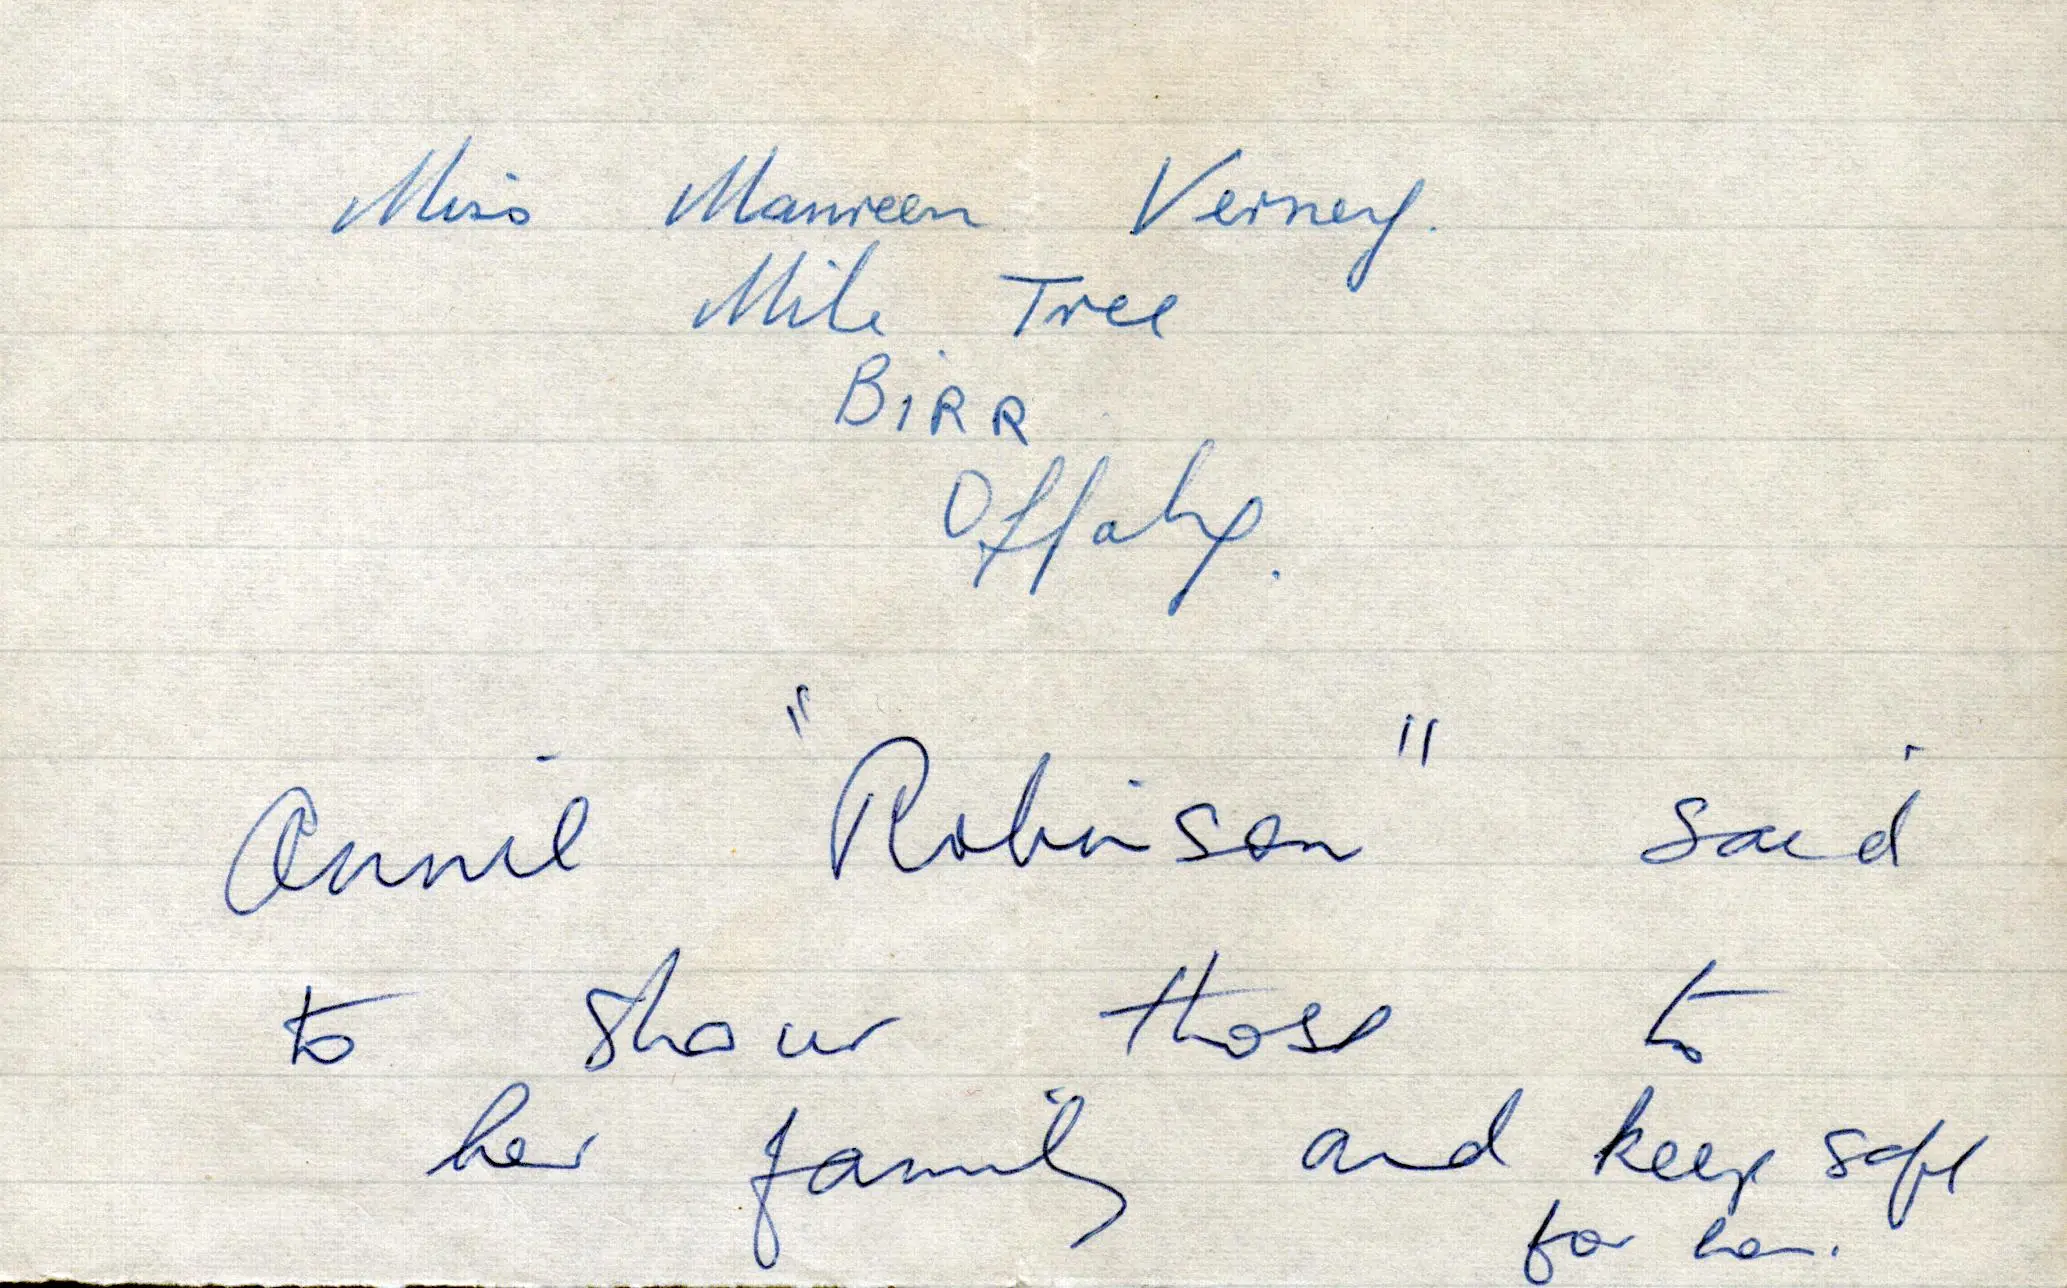 Miss Maureen Verney.
Mile Tree
BIRR
Offaly.
Annie "Robinson" said
to show those to
her family and keep safe
for her.